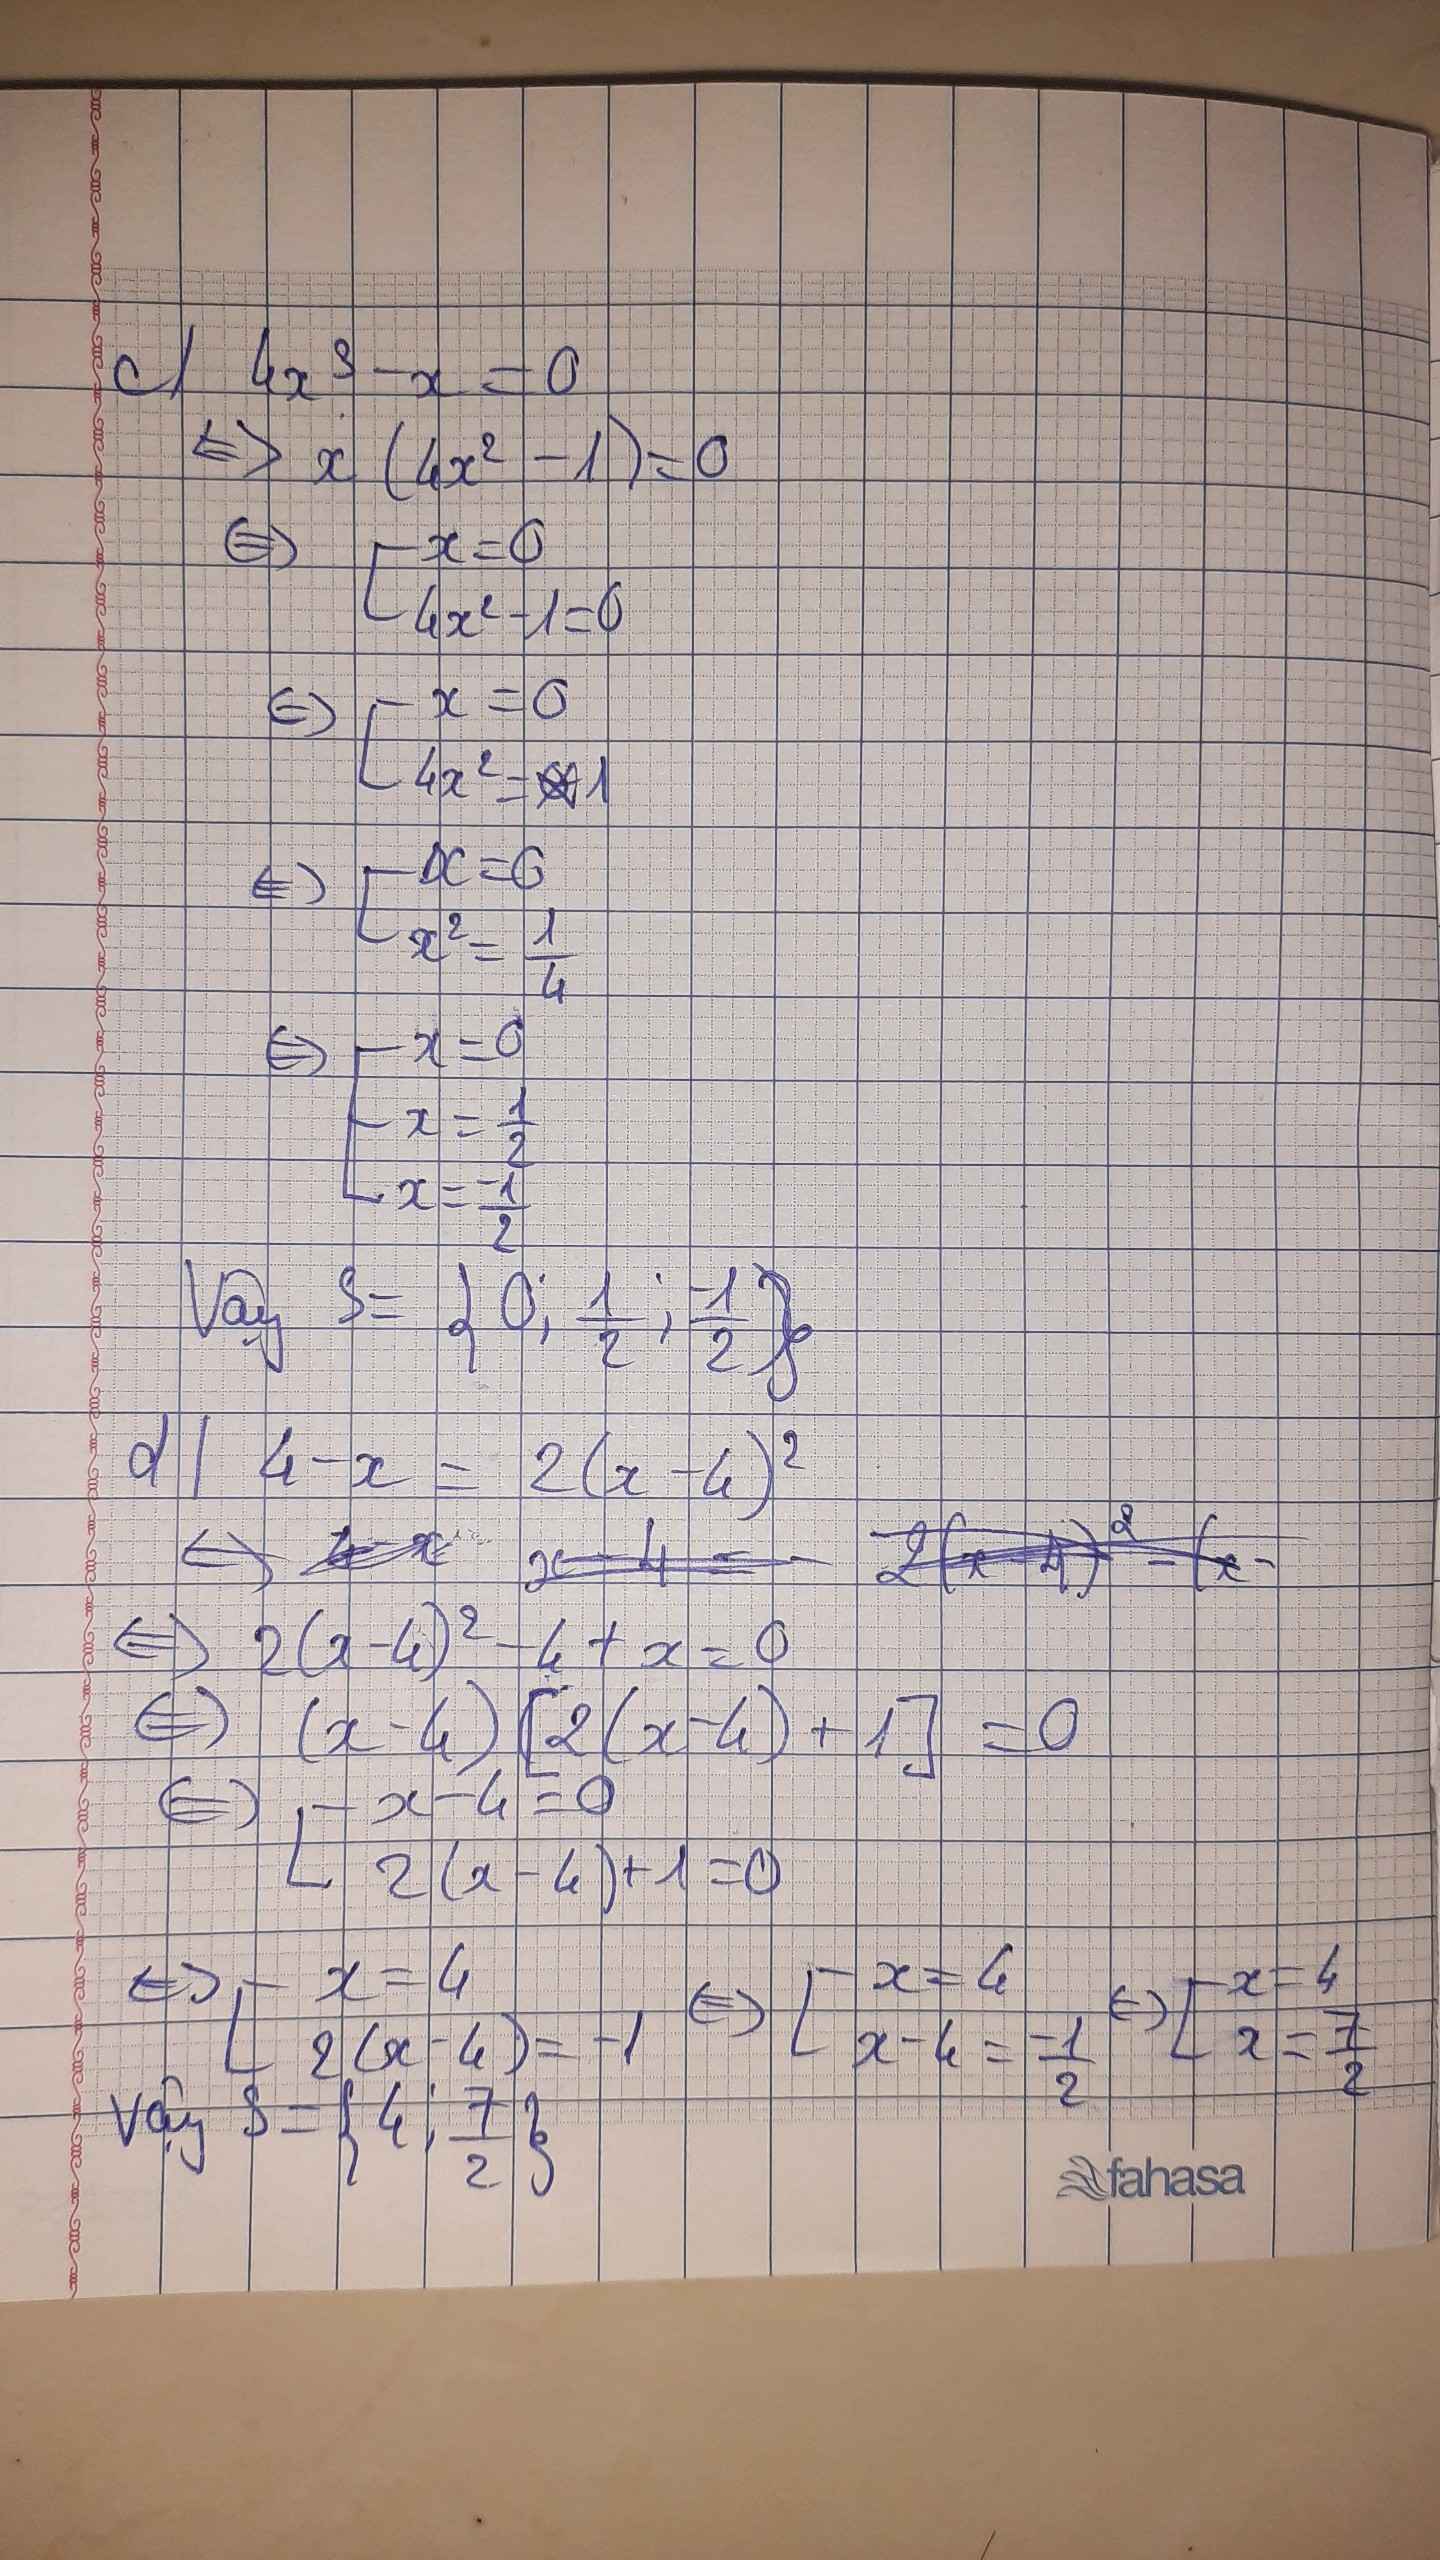 c/ 4x³ - x = 0
<=> x (4x² - 1) = 0
<=> [ x = 0
4x² - 1 = 0
<=> [ x = 0
4x² = 1
<=> [ x = 0
x² = 1/4
<=> [ x = 0
x = 1/2
x = -1/2
Vậy S = {0; 1/2; -1/2}
d/ 4 - x = 2(x - 4)²
<=> 4 - x x - 4 = 2(x - 4)² - (x -
<=> 2(x - 4)² - 4 + x = 0
<=> (x - 4) [2(x - 4) + 1] = 0
<=> [ x - 4 = 0
2(x - 4) + 1 = 0
<=> [ x = 4 <=> [ x = 4 <=> [ x = 4
2(x - 4) = -1 x - 4 = -1/2 x = 7/2
Vậy S = {4; 7/2}
fahasa